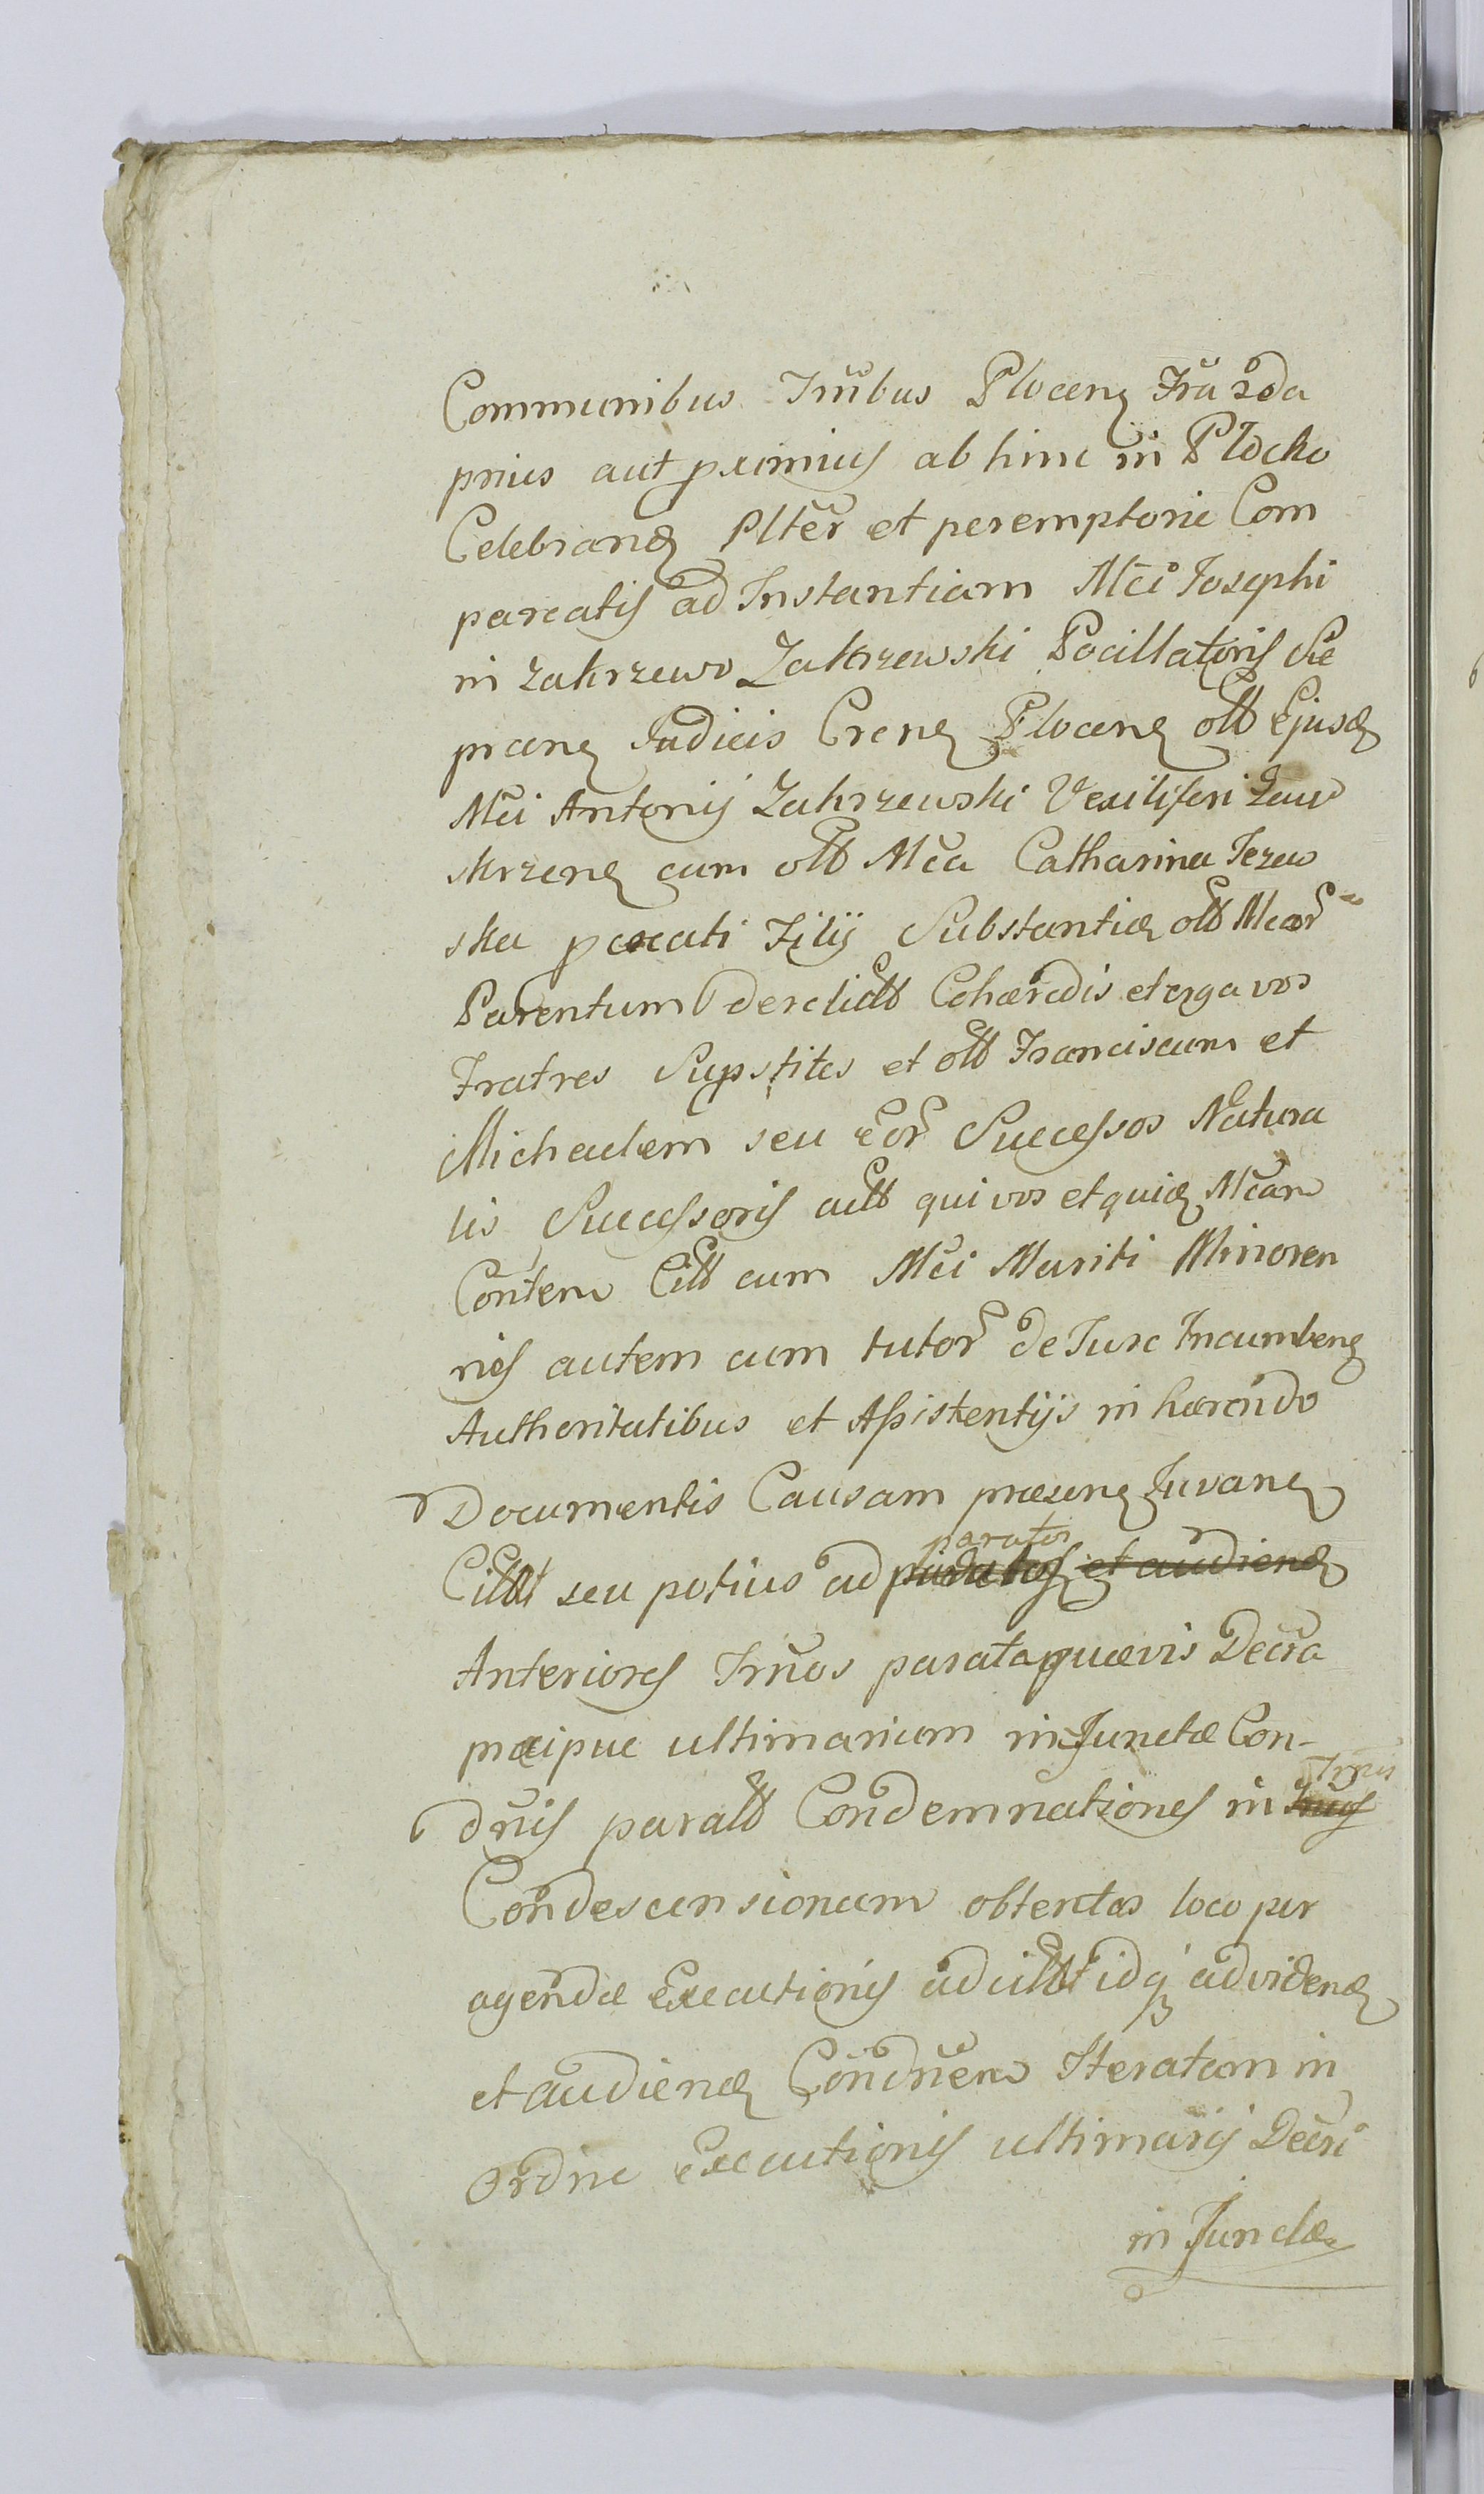 Communibus Trnibus Plocen Fra 2da
prius aut pximius ab hinc in Płocko
Celebrand Plter et peremptorie Com
pareatis ad Instantiam Mci Josephi
in Zakrzewo Zakrzewski Pocillatoris Sie
pracen Judicis Cren Plocen olb Ejusd
Mci Antonij Zakrzewski Vexilliferi Zaw
skrzen cum olb Mca Catharina Jezew
ska pcreati Filij Substantiæ olb Mcar
Parentum derelict Cohæredis et erga vos
Fratres Supstites et olb Franciscum et
Michaelem seu eor Successos Natura
lis Successoris actt qui vos et quid Mcam
Contem Citt cum Mci Mariti Minoren
nes autem cum tutor de Jure Incumben
Authoritatibus et Assistentijs in hærendo
Documentis Causam præsen Juvan
Citt seu potius ad paratos et audiend
paratos
Anteriores Trnos parata quævis Decra
præcipue ultimarium in Junctæ Con-
dnis paratt Condemnationes in Trnos
Trnis
Condescensionum obtentas loco per
agendæ Executionis ad citt idq ad vidend
et audiend Condnem Iteratam in
Ordine Executionis ultimarij Decri
in Junctæ